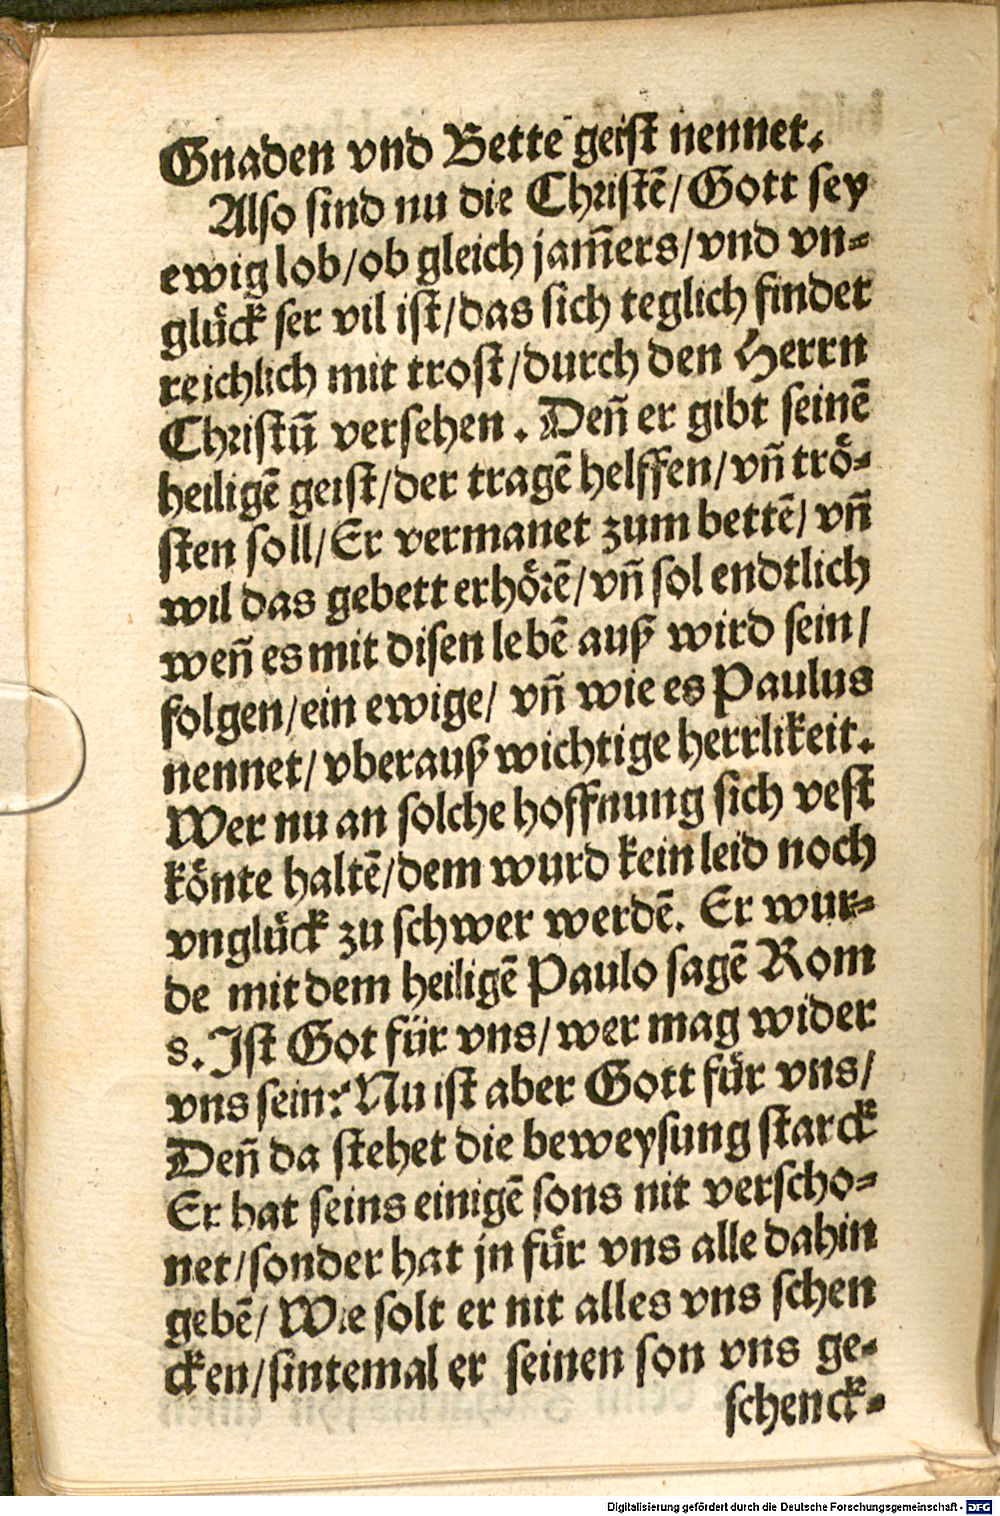 Gnaden vnd Bette geiſt nennet.
Alſo ſind nu die Chriſtē/Gott ſey
ewig lob/ob gleich jam̄ers/vnd vn⸗
gluͤck ſer vil iſt/das ſich teglich findet
reichlich mit troſt/durch den Herrn
Chriſtū verſehen. Den̄ er gibt ſeinē
heiligē geiſt/der tragē helffen/vn̄ troͤ⸗
ſten ſoll/Er vermanet zum bettē/vn̄
wil das gebett erhoͤꝛē/vn̄ ſol endtlich
wen̄ es mit diſen lebē auß wird ſein/
folgen/ein ewige/ vn̄ wie es Paulus
nennet/vberauß wichtige herrlikeit.
Wer nu an ſolche hoffnung ſich veſt
koͤnte haltē/dem wurd kein leid noch
vngluͤck zu ſchwer werdē. Er wur⸗
de mit dem heiligē Paulo ſagē Rom
8. Iſt Got für vns/wer mag wider
vns ſein? Nu iſt aber Gott fuͤr vns/
Den̄ da ſtehet die beweyſung ſtarck
Er hat ſeins einigē ſons nit verſcho⸗
net/ſonder hat jn fuͤr vns alle dahin
gebē/ Wie ſolt er nit alles vns ſchen
cken/ſintemal er ſeinen ſon vns ge⸗
ſchenck⸗
Digitalisierung gefördert durch die Deutsche Forschungsgemeinschaft - DFG